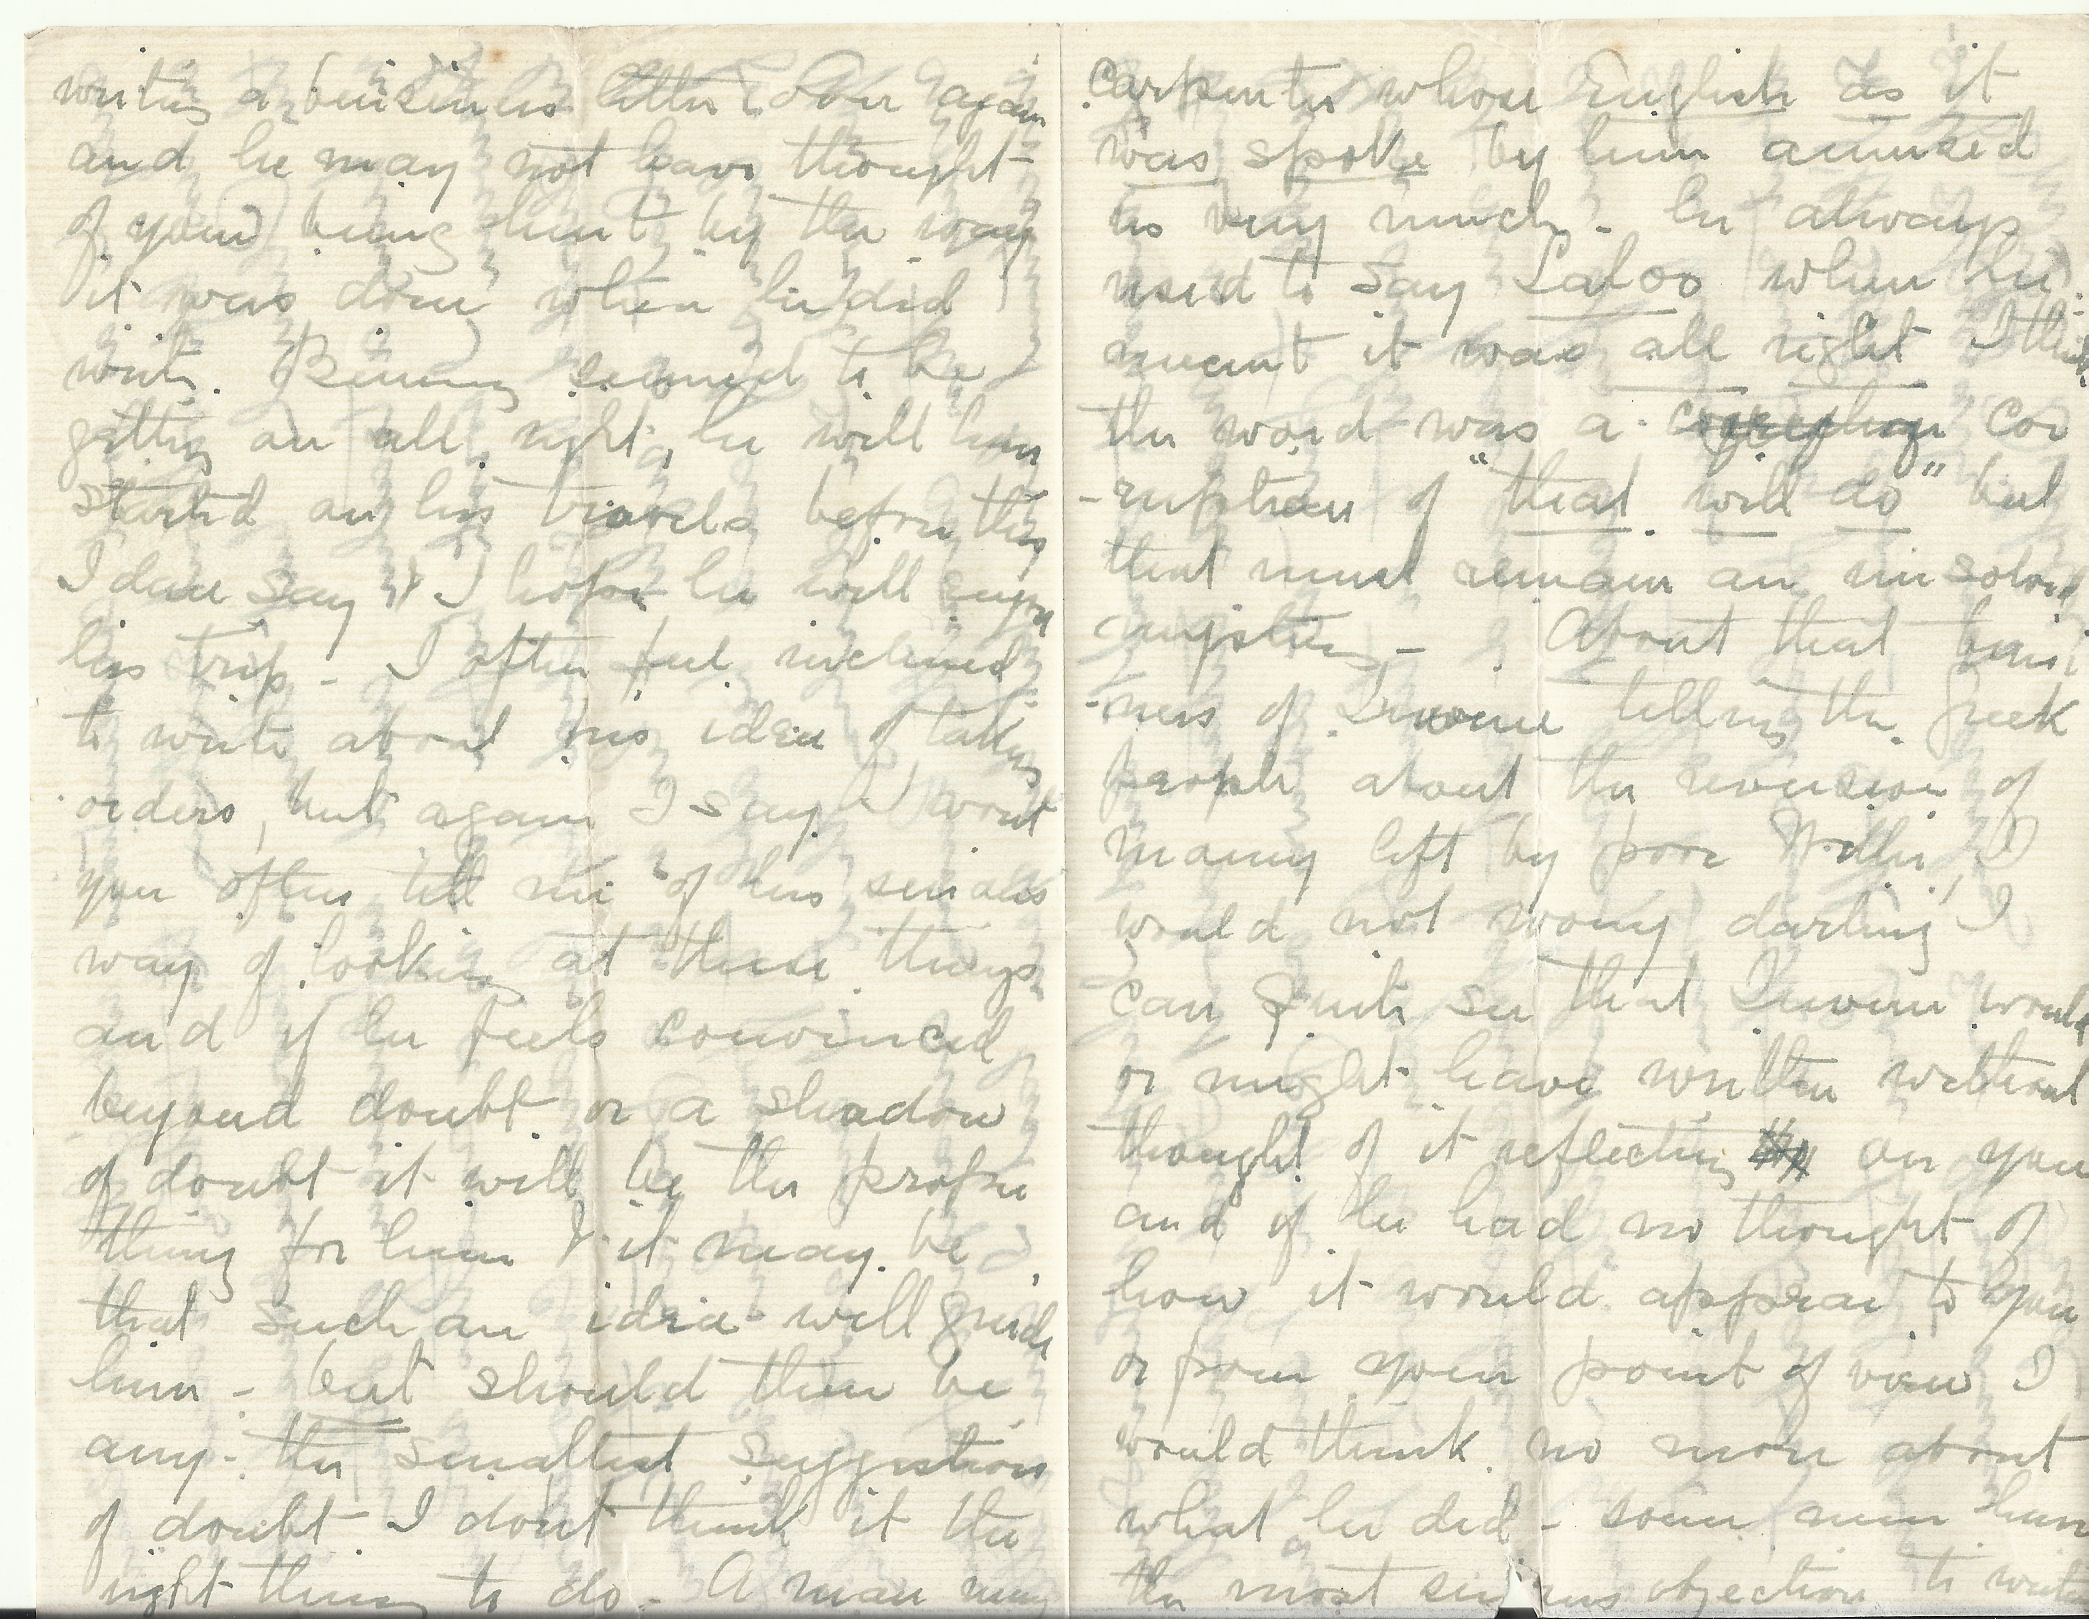 writing a business letter over again
and he may not have thought
of your being hurt by the way
it was done when he did
write. Binny seemed to be
getting on all right, he will have
started on his travels before this
I dare say & I hope he will enjoy
his trip - I often feel inclined
to write about his idea of taking
orders, but again I say I wont
you often tell me of his serious
way of looking at these things
and if he feels convinced
beyond doubt or a shadow
of doubt it will be the proper
thing for him & it may be
that such an idea will guide
him - but should there be
any - the smallest suggestion
of doubt I dont think it the
right thing to do - A man may
carpenter whose English as it
was spoke by him amused
us very much - he always
used to say Laloo when he
meant it was all right I think
the word was a cor
-ruption of "that will do" but
that must remain an unsolved
mystery - About that busi
-ness of telling the Greek
people about the reversion of
money left by poor Willie, I
would not worry darling I
can quite see that would
or might have written without
thought of it reflecting on you
and if he had no thought of
how it would appear to you
or from your point of view I
would think no more about
what he did - some men have
the most serious objection to write